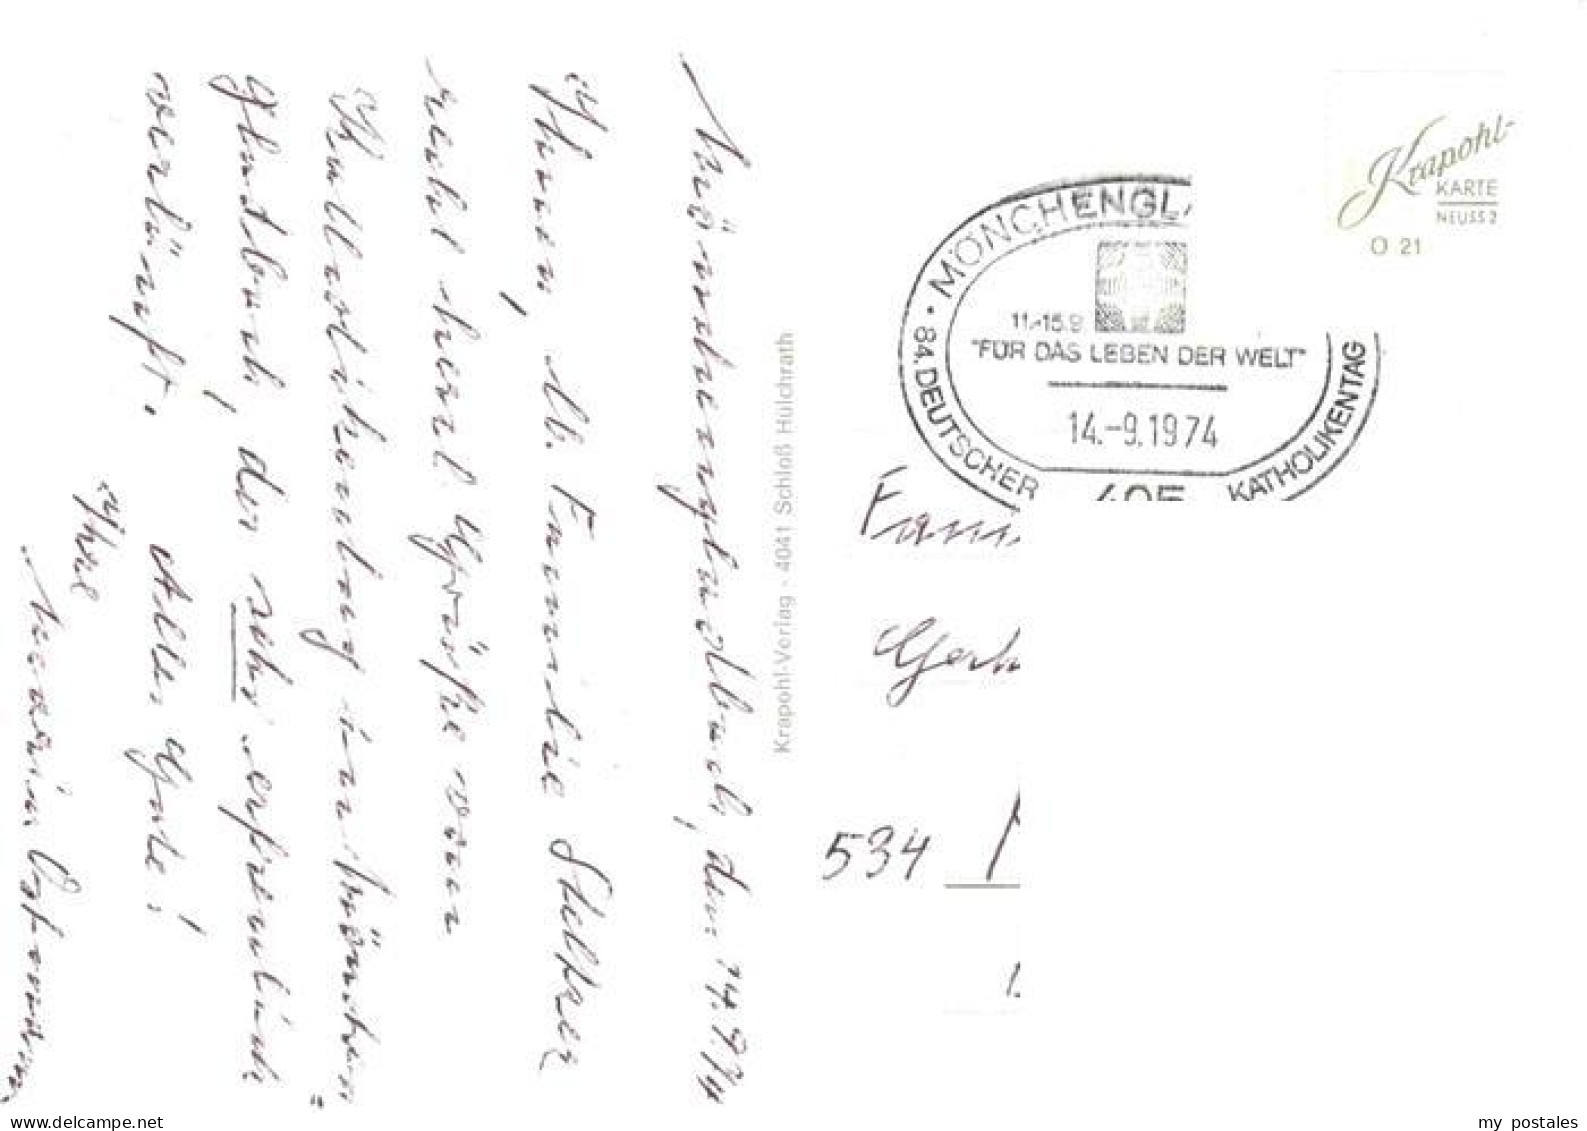 Mönchengladbach, den 14.9.74
Ihnen, lb. Familie Stelzer
recht herzl. Grüße vom
Katholikentag in Mönchen=
gladbach, der sehr erfreulich
verläuft. Alles Gute!
Ihre
Krapohl-Verlag - 4041 Schloß Hülchrath
Krapohl-
KARTE
NEUSS 2
O 21
MÖNCHENGL
11.-15.9.
"FÜR DAS LEBEN DER WELT"
14.-9.1974
84. DEUTSCHER KATHOLIKENTAG
405
Fam
Gerh
534
www.delcampe.net
my postales